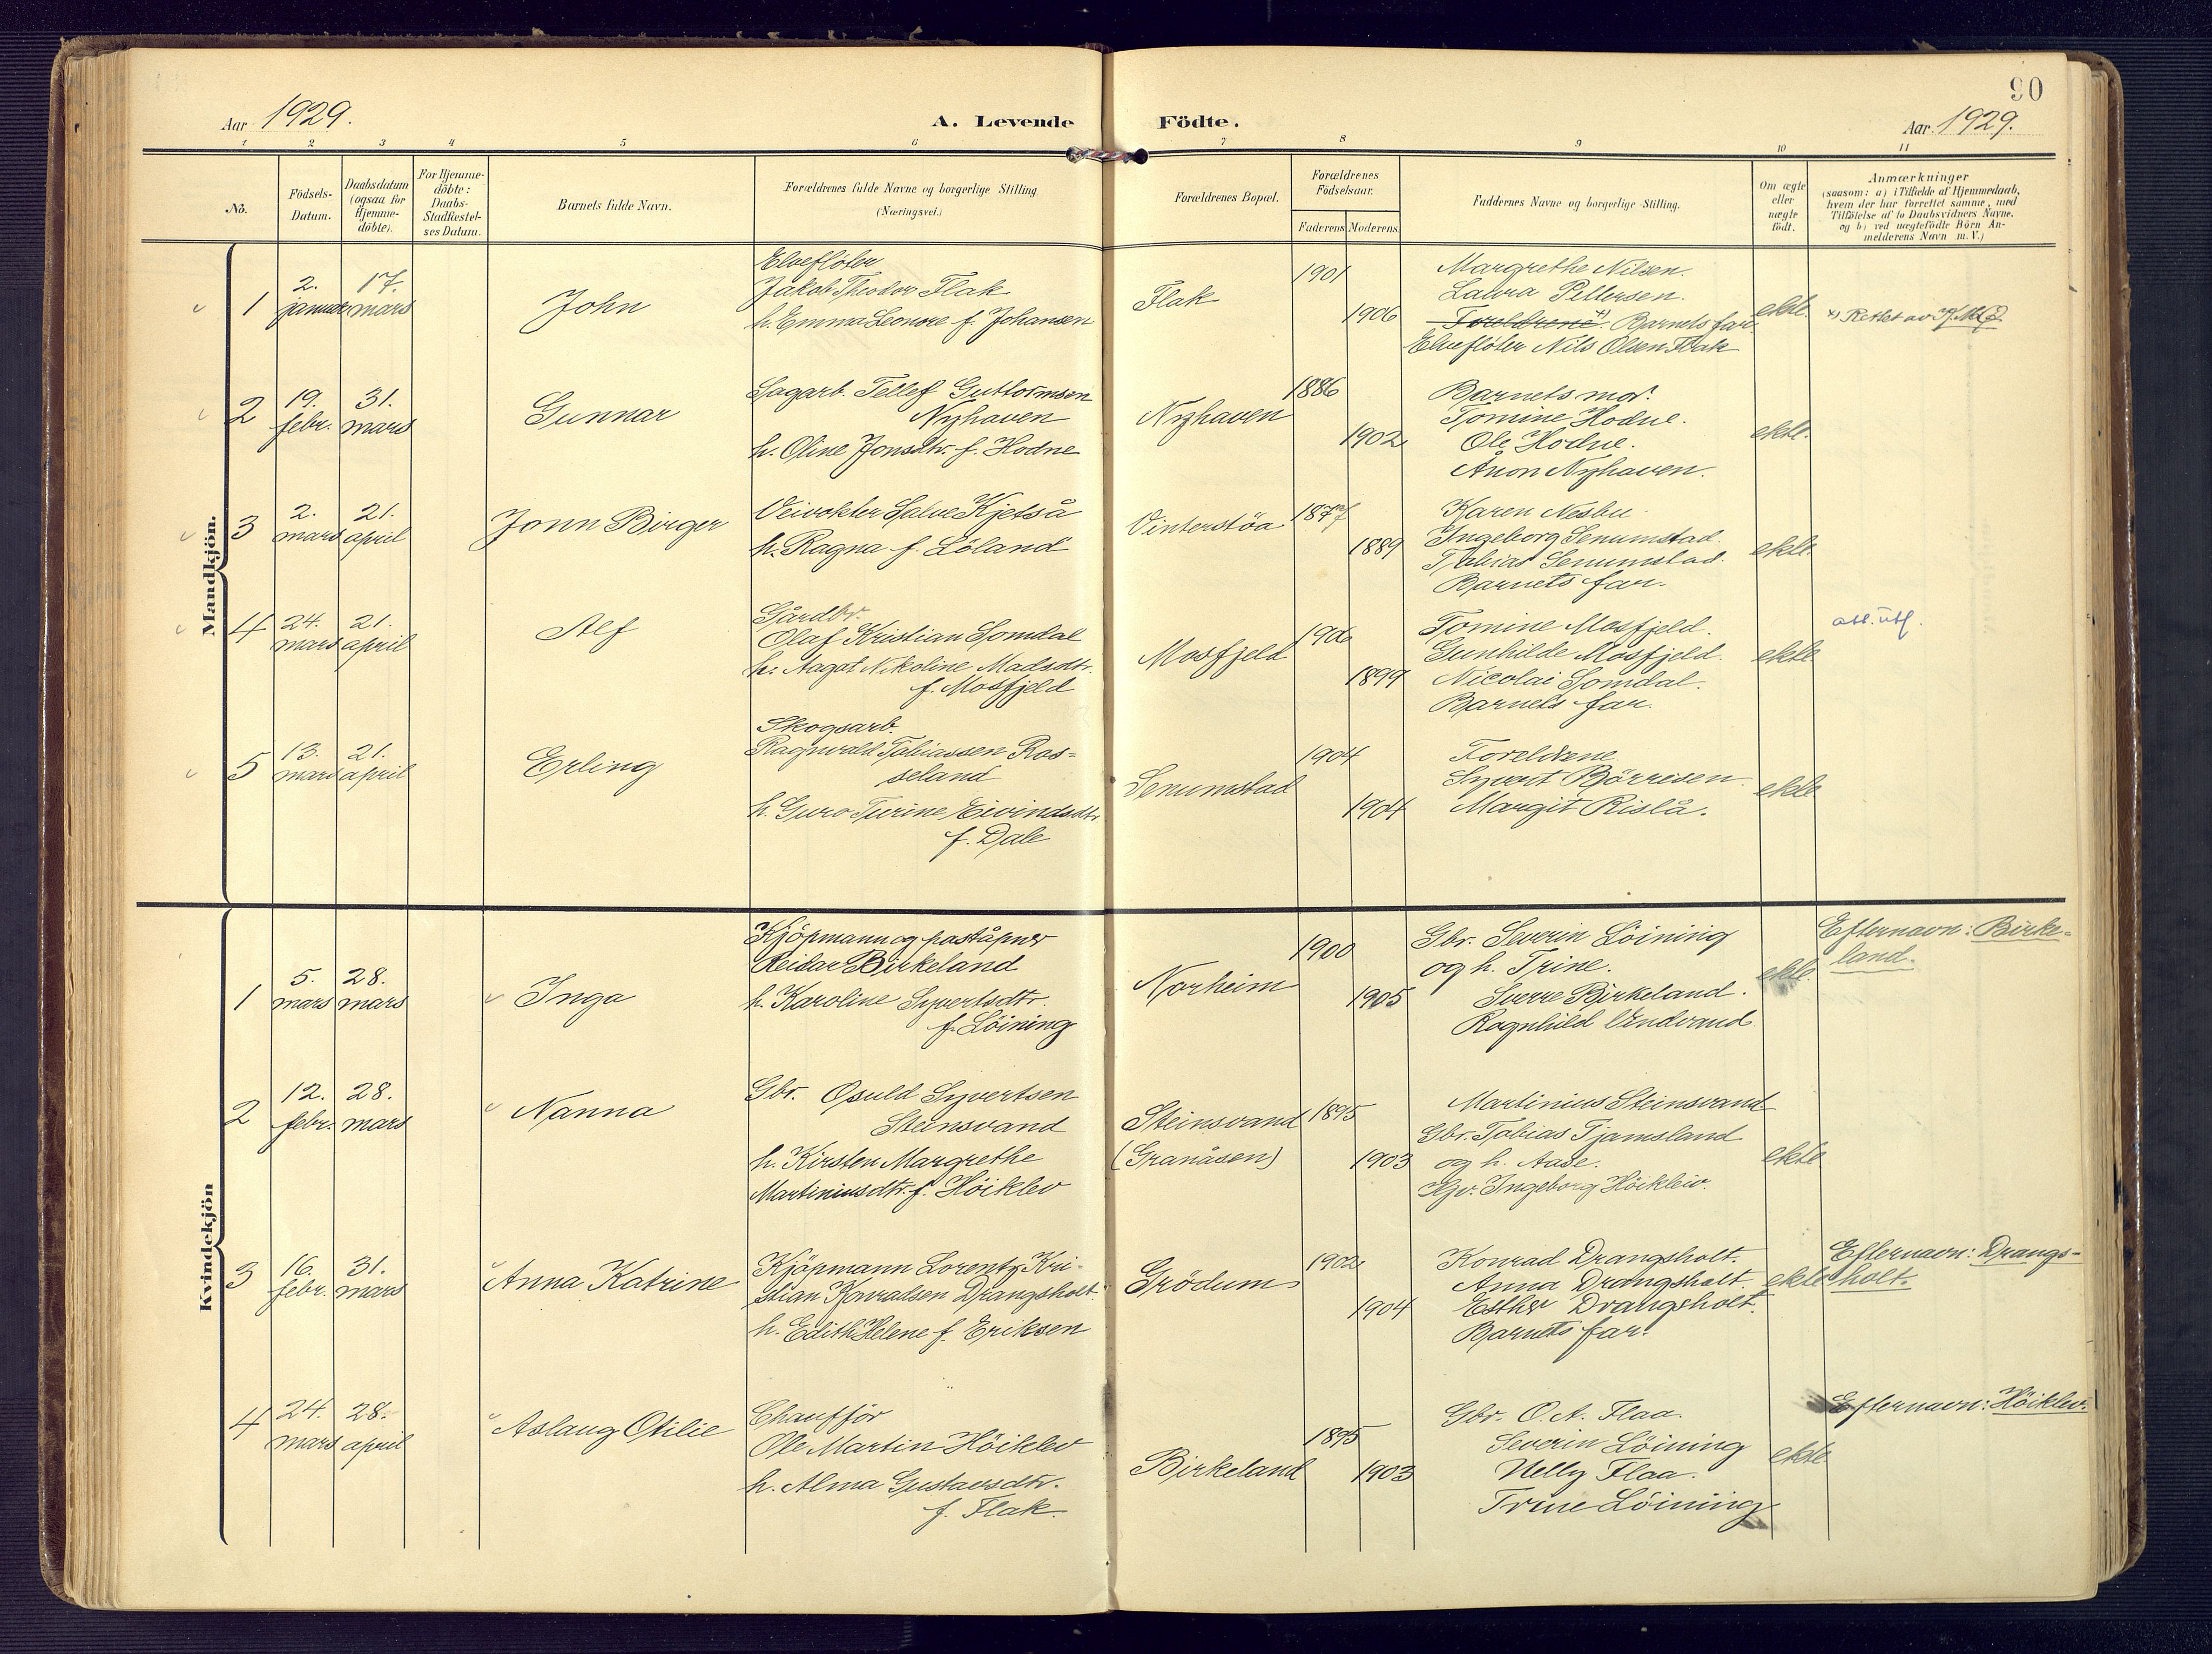 90
Aar 1929.
A. Levende Födte.
Aar 1929.
1 2 3 4 5 6 7 8 9 10 11
No.
Födsels-
Datum.
Daabsdatum
(ogsaa for
Hjemme-
döbte).
For Hjemme-
döbte:
Daabs-
Stadfæstel-
ses Datum.
Barnets fulde Navn.
Forældrenes fulde Navne og borgerlige Stilling
(Næringsvei.)
Forældrenes Bopæl.
Forældrenes
Födselsaar.
Faderens Moderens
Faddernes Navne og borgerlige Stilling.
Om ægte
eller
uægte
födt.
Anmærkninger
(saasom: a) i Tilfælde af Hjemmedaab,
hvem der har forrettet samme, med
Tilföielse af to Daabsvidners Navne,
og b) ved uægtefödte Börn An-
melderens Navn m. V.)
Mandkjön.
1
2.
januar
17.
mars
John
Elvefløter
Jakob Theodor Flak
h. Emma Leonore f. Johansen
Flak
1901
1906
Margrethe Nilsen.
Laura Pettersen.
Foreldrene x) Barnets far
Elvefløter Nils Olsen Flak
ekte.
x) Rettet av
2
19.
febr.
31.
mars
Gunnar
Sagarb. Tellef Guttormsen
Nyhaven
h. Oline Jonsdtr. f. Hodne
Nyhaven
1886
1902
Barnets mor.
Tomine Hodne.
Ole Hodne.
Anon Nyhaven.
ekte.
3
2.
mars
21.
april
Jonn Birger
Veivokter Salve Kjetså
h. Ragna f. Löland
Vinterstöa
1877
1889
Karen Nesbu
Ingeborg Senumstad.
Tobias Senumstad.
Barnets far.
ekte.
4
24.
mars
21.
april
Alf
Gårdbr.
Olaf Kristian Somdal
h. Aagot Nikoline Madsdtr.
f. Mosfjeld
Mosfjeld
1906
1899
Tomine Mosfjeld.
Gunhilde Mosfjeld.
Nicolai Somdal.
Barnets far.
ekte
att. utf.
5
13.
mars
21.
april
Erling
Skogsarb.
Ragnvald Tobiassen Ros-
seland
h. Guro Turine Eivindsdtr.
f. Dale
Senumstad
1904
1904
Foreldrene
Syvert Börresen
Margit Rislå.
ekte
Kvindekjön
1
5.
mars
28.
mars
Inga
Kjöpmann og poståpner
Reidar Birkeland
h. Karoline Syvertsdtr.
f. Löining
Norheim
1900
1905
Gbr. Severin Löining
og h. Trine.
Sverre Birkeland.
Ragnhild Vendvand
ekte
Efternavn: Birke-
land.
2
12.
febr.
28.
mars
Nanna
Gbr. Osuld Syvertsen
Steinsvand
h. Kirsten Margrethe
Martiniusdtr. f. Höiklev
Steinsvand
(Granåsen)
1895
1903
Martinius Steinsvand
Gbr. Tobias Tjamsland
og h. Aase.
Gjv. Ingeborg Höikleiv.
ekte
3
16.
febr.
31.
mars
Anna Katrine
Kjöpmann Lorentz Kri-
stian Konradsen Drangsholt.
h. Edith Helene f. Eriksen
Grödum
1902
1904
Konrad Drangsholt.
Anna Drangsholt.
Esther Drangsholt.
Barnets far.
ekte
Efternavn: Drangs-
holt.
4
24.
mars
28.
april
Aslaug Otilie
Chaufför
Ole Martin Höiklev
h. Alma Gustavsdtr.
f. Flak.
Birkeland
1895
1903
Gbr. O. A. Flaa.
Severin Löining
Nelly Flaa.
Trine Löining
ekte
Efternavn: Höiklev.